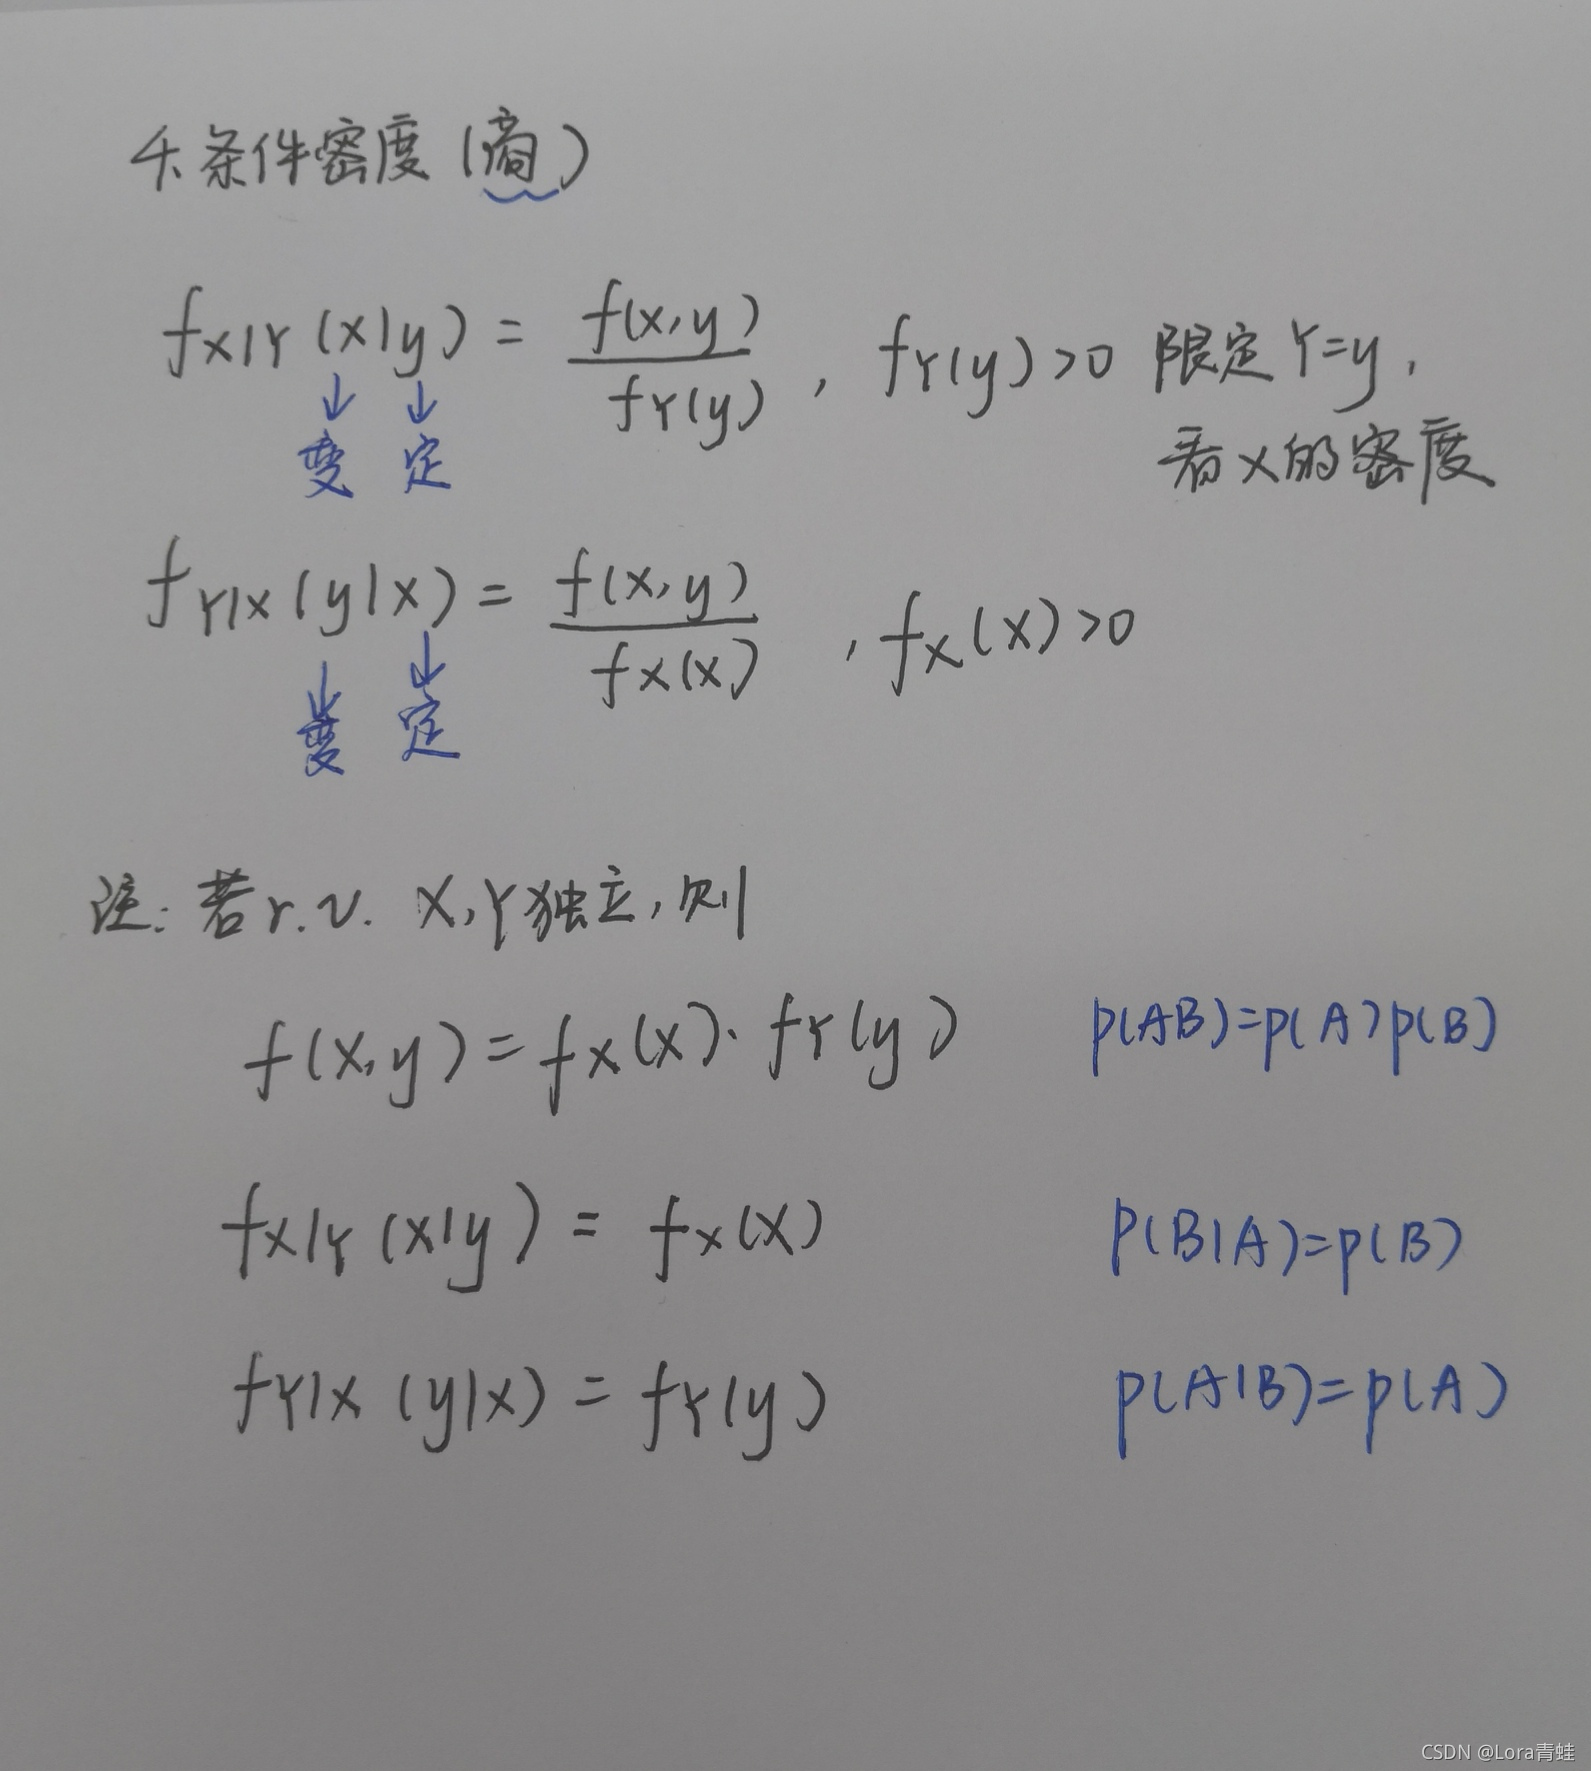 4. 条件密度（商）
f_{X|Y}(x|y) = \frac{f(x,y)}{f_Y(y)} , f_Y(y)>0 限定Y=y，
看X的密度
↓ ↓
变 定
f_{Y|X}(y|x) = \frac{f(x,y)}{f_X(x)} , f_X(x)>0
↓ ↓
变 定
注: 若r.v. X,Y独立, 则
f(x,y) = f_X(x)·f_Y(y) P(AB)=P(A)P(B)
f_{X|Y}(x|y) = f_X(x) P(B|A)=P(B)
f_{Y|X}(y|x) = f_Y(y) P(A|B)=P(A)
CSDN @Lora青蛙